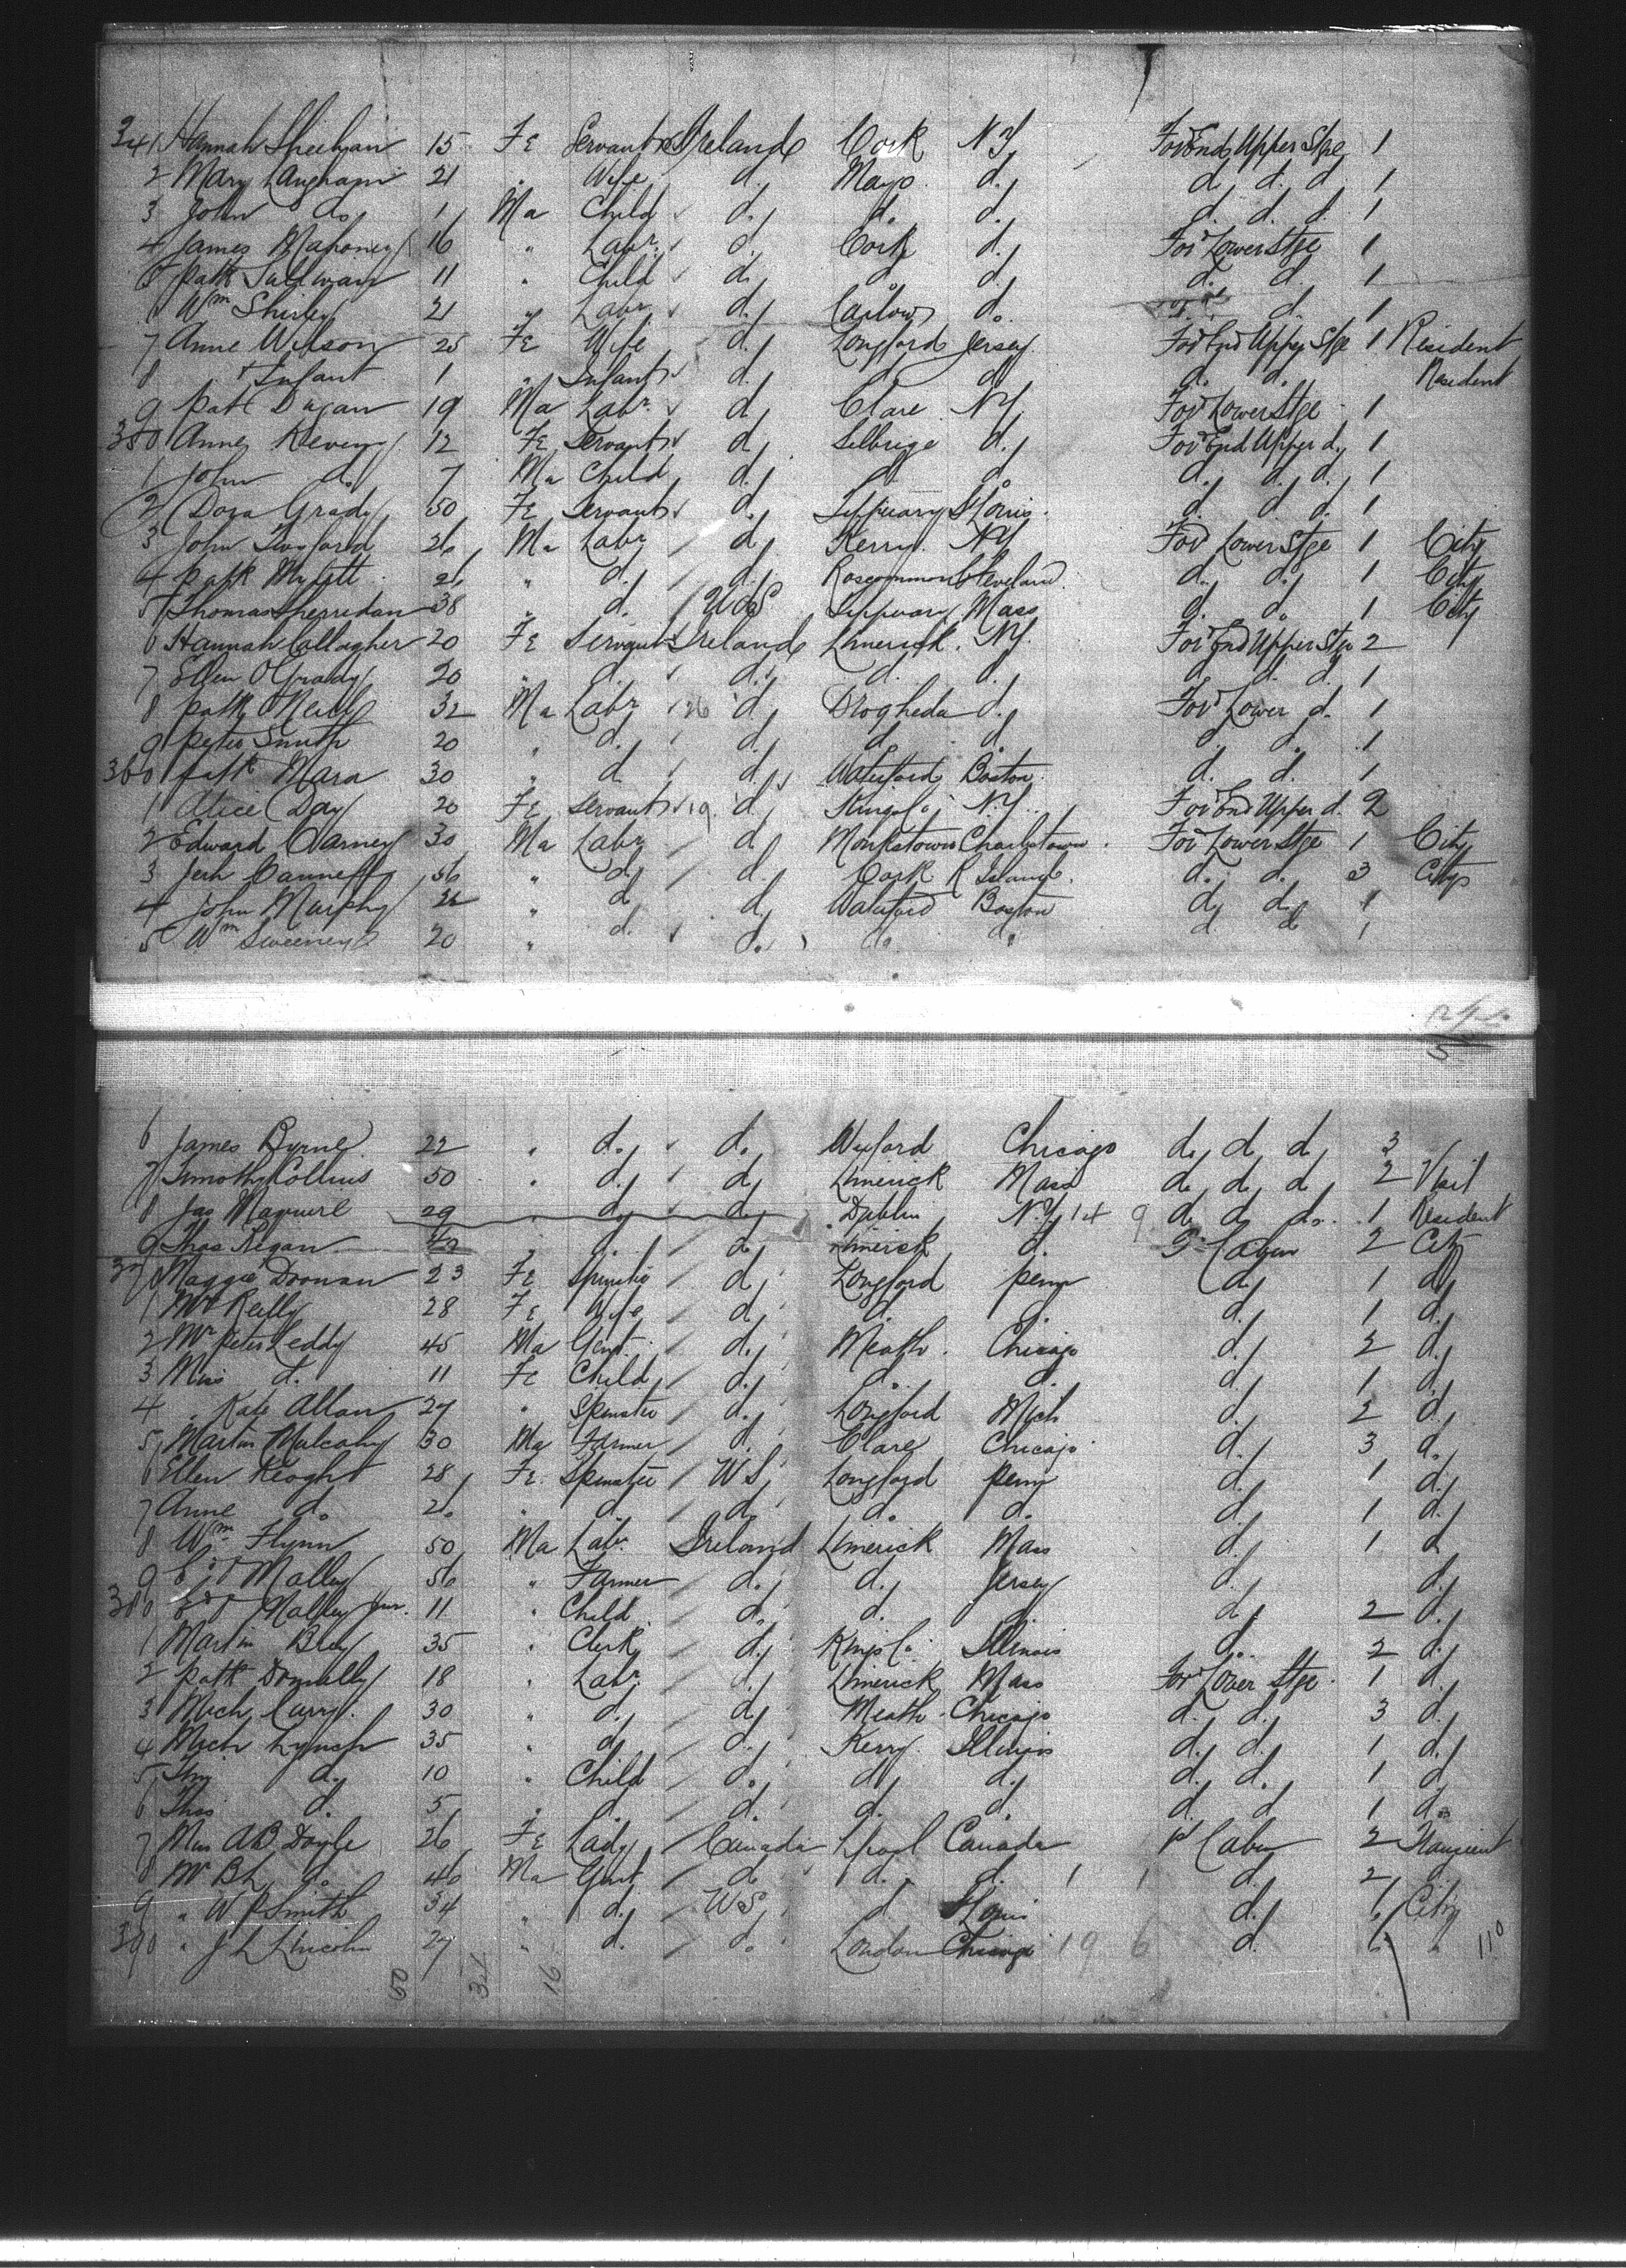 341 Hannah Sheehan 15 Fe Servant Ireland Cork N.Y. For End Upper Stge 1
2 Mary Langham 21 " Wife do Mayo do do do do 1
3 John do 1 Ma Child do do do do do do 1
4 James Mahoney 16 " Labr do Cork do For Lower Stge 1
5 Patk Sullivan 11 " Child do do do do do 1
6 Wm Shirley 21 " Labr do Carlow do do do 1
7 Anne Wilson 25 Fe Wife do Longford Jersey For End Upper Stge 1 Resident
8 " Infant 1 " Infant do do do do do Resident
9 Patk Dugan 19 Ma Labr do Clare N.Y. For Lower Stge 1
350 Anne Keveny 12 Fe Servant do do For End Upper do 1
1 John do 7 Ma Child do do do do do do 1
2 Dora Grady 50 Fe Servant do Tipperary St Louis do do do 1
3 John Twyford 26 Ma Labr do Kerry N.Y. For Lower Stge 1 City
4 Patk 26 " do do Roscommon Cleveland do do 1 City
5 Thomas Sherridan 38 " do U S Tipperary Mass do do 1 City
6 Hannah Callagher 20 Fe Servant Ireland Limerick N.Y. For End Upper Stge 2
7 Ellen O Grady 20 " do do do do do do do 1
8 Patk O Neill 32 Ma Labr 26 do Drogheda do For Lower do 1
9 Peter Smith 20 " do do do do do do 1
360 Patk Mara 30 " do do Waterford Boston do do 1
1 Alice Day 20 Fe Servant 19 do Kings Co N.Y. For End Upper do 2
2 Edward Carney 30 Ma Labr do Monkstown Charlestown For Lower Stge 1 City
3 Jerh 56 " do do Cork R Island do do 3 City
4 John Murphy 22 " do do Waterford Boston do do 1
5 Wm Sweeney 20 " do do do do do do 1
5
6 James Byrne 22 " do do Wexford Chicago do do do 3
7 Timothy Collins 50 " do do Limerick Mass do do do 2 Visit
8 Jas Maguire 29 " do do Dublin N.Y. 14 9 do do do 1 Resident
9 Thos Regan 40 " do do Limerick do Cabin 2 City
370 Maggie Doonan 23 Fe Spinster do Longford Penn do 1 do
1 Mrs Reilly 28 Fe Wife do do do do 1 do
2 Mr Peter Leddy 45 Ma Gent do Meath Chicago do 2 do
3 Miss do 11 Fe Child do do do do 1 do
4 " Kate Allan 27 " Spinster do Longford Mich do 2 do
5 Martin Mulcahy 30 Ma Farmer do Clare Chicago do 3 do
6 Ellen Keoght 28 Fe Spinster U S Longford Penn do 1 do
7 Anne do 20 " do do do do do 1 do
8 Wm Flynn 50 Ma Labr Ireland Limerick Mass do 1 do
9 Malley 56 " Farmer do do Jersey do do
380 Malley Jur. 11 " Child do do do do 2 do
1 Martin Bray 35 " Clerk do Kings Co Illinois do 2 do
2 Patk Donnelly 18 " Labr do Limerick Mass For Lower Stge 1 do
3 Mich Curry 30 " do do Meath Chicago do do 3 do
4 Mich Lynch 35 " do do Kerry Illinois do do 1 do
5 do 10 " Child do do do do do 1 do
6 Thos do 5 " do do do do do do 1 do
7 Mrs A B Doyle 26 Fe Lady Canada Lpool Canada 1st Cabin 2 Transient
8 Mr B L do 40 Ma Gent do do do 1 1 do 2
9 " W P Smith 34 " do U S do St Louis do 1 City
390 " J L Lincoln 27 " do do London Chicago 19 6 do 1 "
110
50 34 16